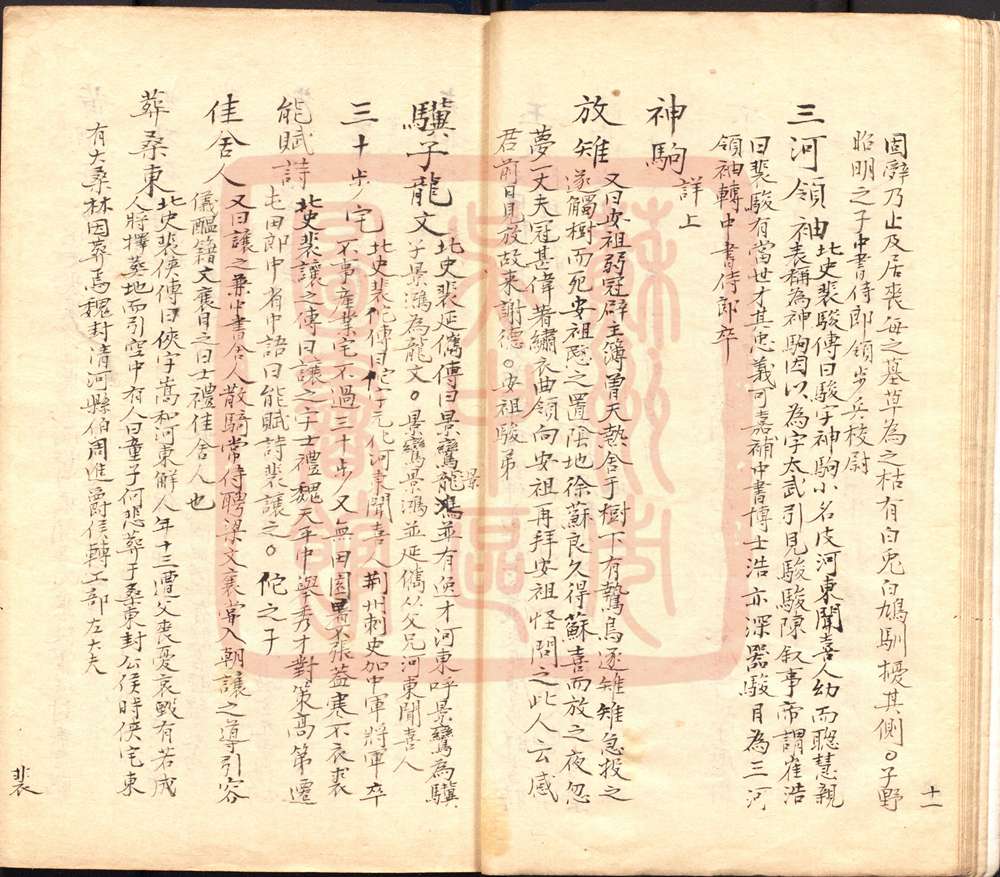 固辭乃止及居喪每之墓草為之枯有白兎白鳩馴擾其側○子野
昭明之子中書侍郎領步兵校尉
三河領袖 北史裴駿傳曰駿字神駒小名皮河東聞喜人幼而聰慧親
表稱為神駒因以為字太武引見駿駿陳叙事帝謂崔浩
曰裴駿有當世才其忠義可嘉補中書博士浩亦深器駿目為三河
領袖轉中書侍郎卒
神駒 詳上
放雉 又曰安祖弱冠辟主簿曽天熱舍于樹下有鷙鳥逐雉雉急投之
遂觸樹而死安祖愍之置隂地徐蘇良久得蘇喜而放之夜忽
夢一丈夫冠甚偉著繡衣曲領向安祖再拜安祖怪問之此人云感
君前日見放故来謝德○安祖駿弟
驥子龍文 北史裴延儁傳曰景鸞景鴻並有逸才河東呼景鸞為驥
子景鴻為龍文○景鸞景鴻並延儁從父兄河東聞喜人
三十步宅 北史裴佗傳曰佗字元化河東聞喜人荆州刺史加中軍將軍卒
不事產業宅不過三十步又無田園暑不張蓋寒不衣裘
能賦詩 北史裴讓之傳曰讓之字士禮魏天平中舉秀才對策高第遷
屯田郎中省中語曰能賦詩裴讓之○佗之子
佳舍人 又曰讓之兼中書舍人散騎常侍聘梁文襄嘗入朝讓之導引容
儀醞籍文襄目之曰士禮佳舍人也
葬桑東 北史裴俠傳曰俠字嵩和河東解人年十三遭父喪憂哀毀有若成
人將擇葬地而引空中有人曰童子何悲葬于桑東封公侯時俠宅東
有大桑林因葬焉魏封清河縣伯周進爵侯轉工部左大夫
十一
裴